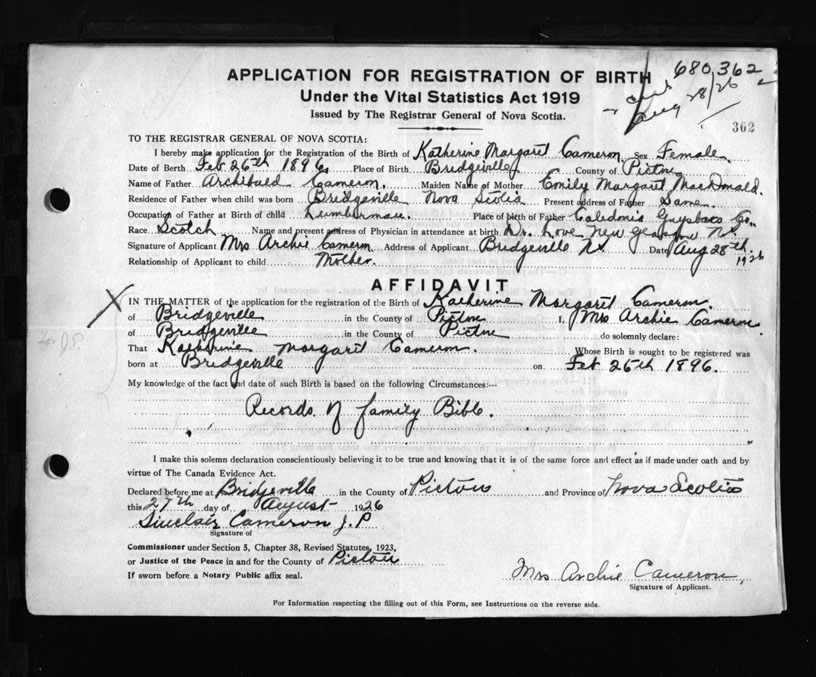 APPLICATION FOR REGISTRATION OF BIRTH
680,362
Under the Vital Statistics Act 1919
Aug 28/26
Issued by The Registrar General of Nova Scotia.
362
TO THE REGISTRAR GENERAL OF NOVA SCOTIA:
I hereby make application for the Registration of the Birth of Katherine Margaret Cameron Sex Female
Date of Birth Feb 26th 1896 Place of Birth Bridgeville County of Pictou
Name of Father Archibald Cameron. Maiden Name of Mother Emily Margaret MacDonald.
Residence of Father when child was born Bridgeville Nova Scotia Present address of Father Same.
Occupation of Father at Birth of child Lumberman. Place of birth of Father Caledonia Guysboro Co.
Race Scotch Name and present address of Physician in attendance at birth Dr. Love New Glasgow N.S.
Signature of Applicant Mrs Archie Cameron Address of Applicant Bridgeville N.S. Date Aug 28th. 1926
Relationship of Applicant to child Mother.
AFFIDAVIT
X IN THE MATTER of the application for the registration of the Birth of Katherine Margaret Cameron.
of Bridgeville in the County of Pictou I, Mrs Archie Cameron
of Bridgeville in the County of Pictou do solemnly declare:
For J.P.
That Katherine Margaret Cameron. Whose Birth is sought to be registered was
born at Bridgeville on Feb 26th 1896.
My knowledge of the fact and date of such Birth is based on the following Circumstances:—
Records of family Bible.
I make this solemn declaration conscientiously believing it to be true and knowing that it is of the same force and effect as if made under oath and by
virtue of The Canada Evidence Act.
Declared before me at Bridgeville in the County of Pictou and Province of Nova Scotia
this 27th day of August 1926
Sinclair Cameron J.P
Signature of
Commissioner under Section 5, Chapter 38, Revised Statutes, 1923,
or Justice of the Peace in and for the County of Pictou
If sworn before a Notary Public affix seal.
Mrs Archie Cameron,
Signature of Applicant.
For Information respecting the filling out of this Form, see Instructions on the reverse side.